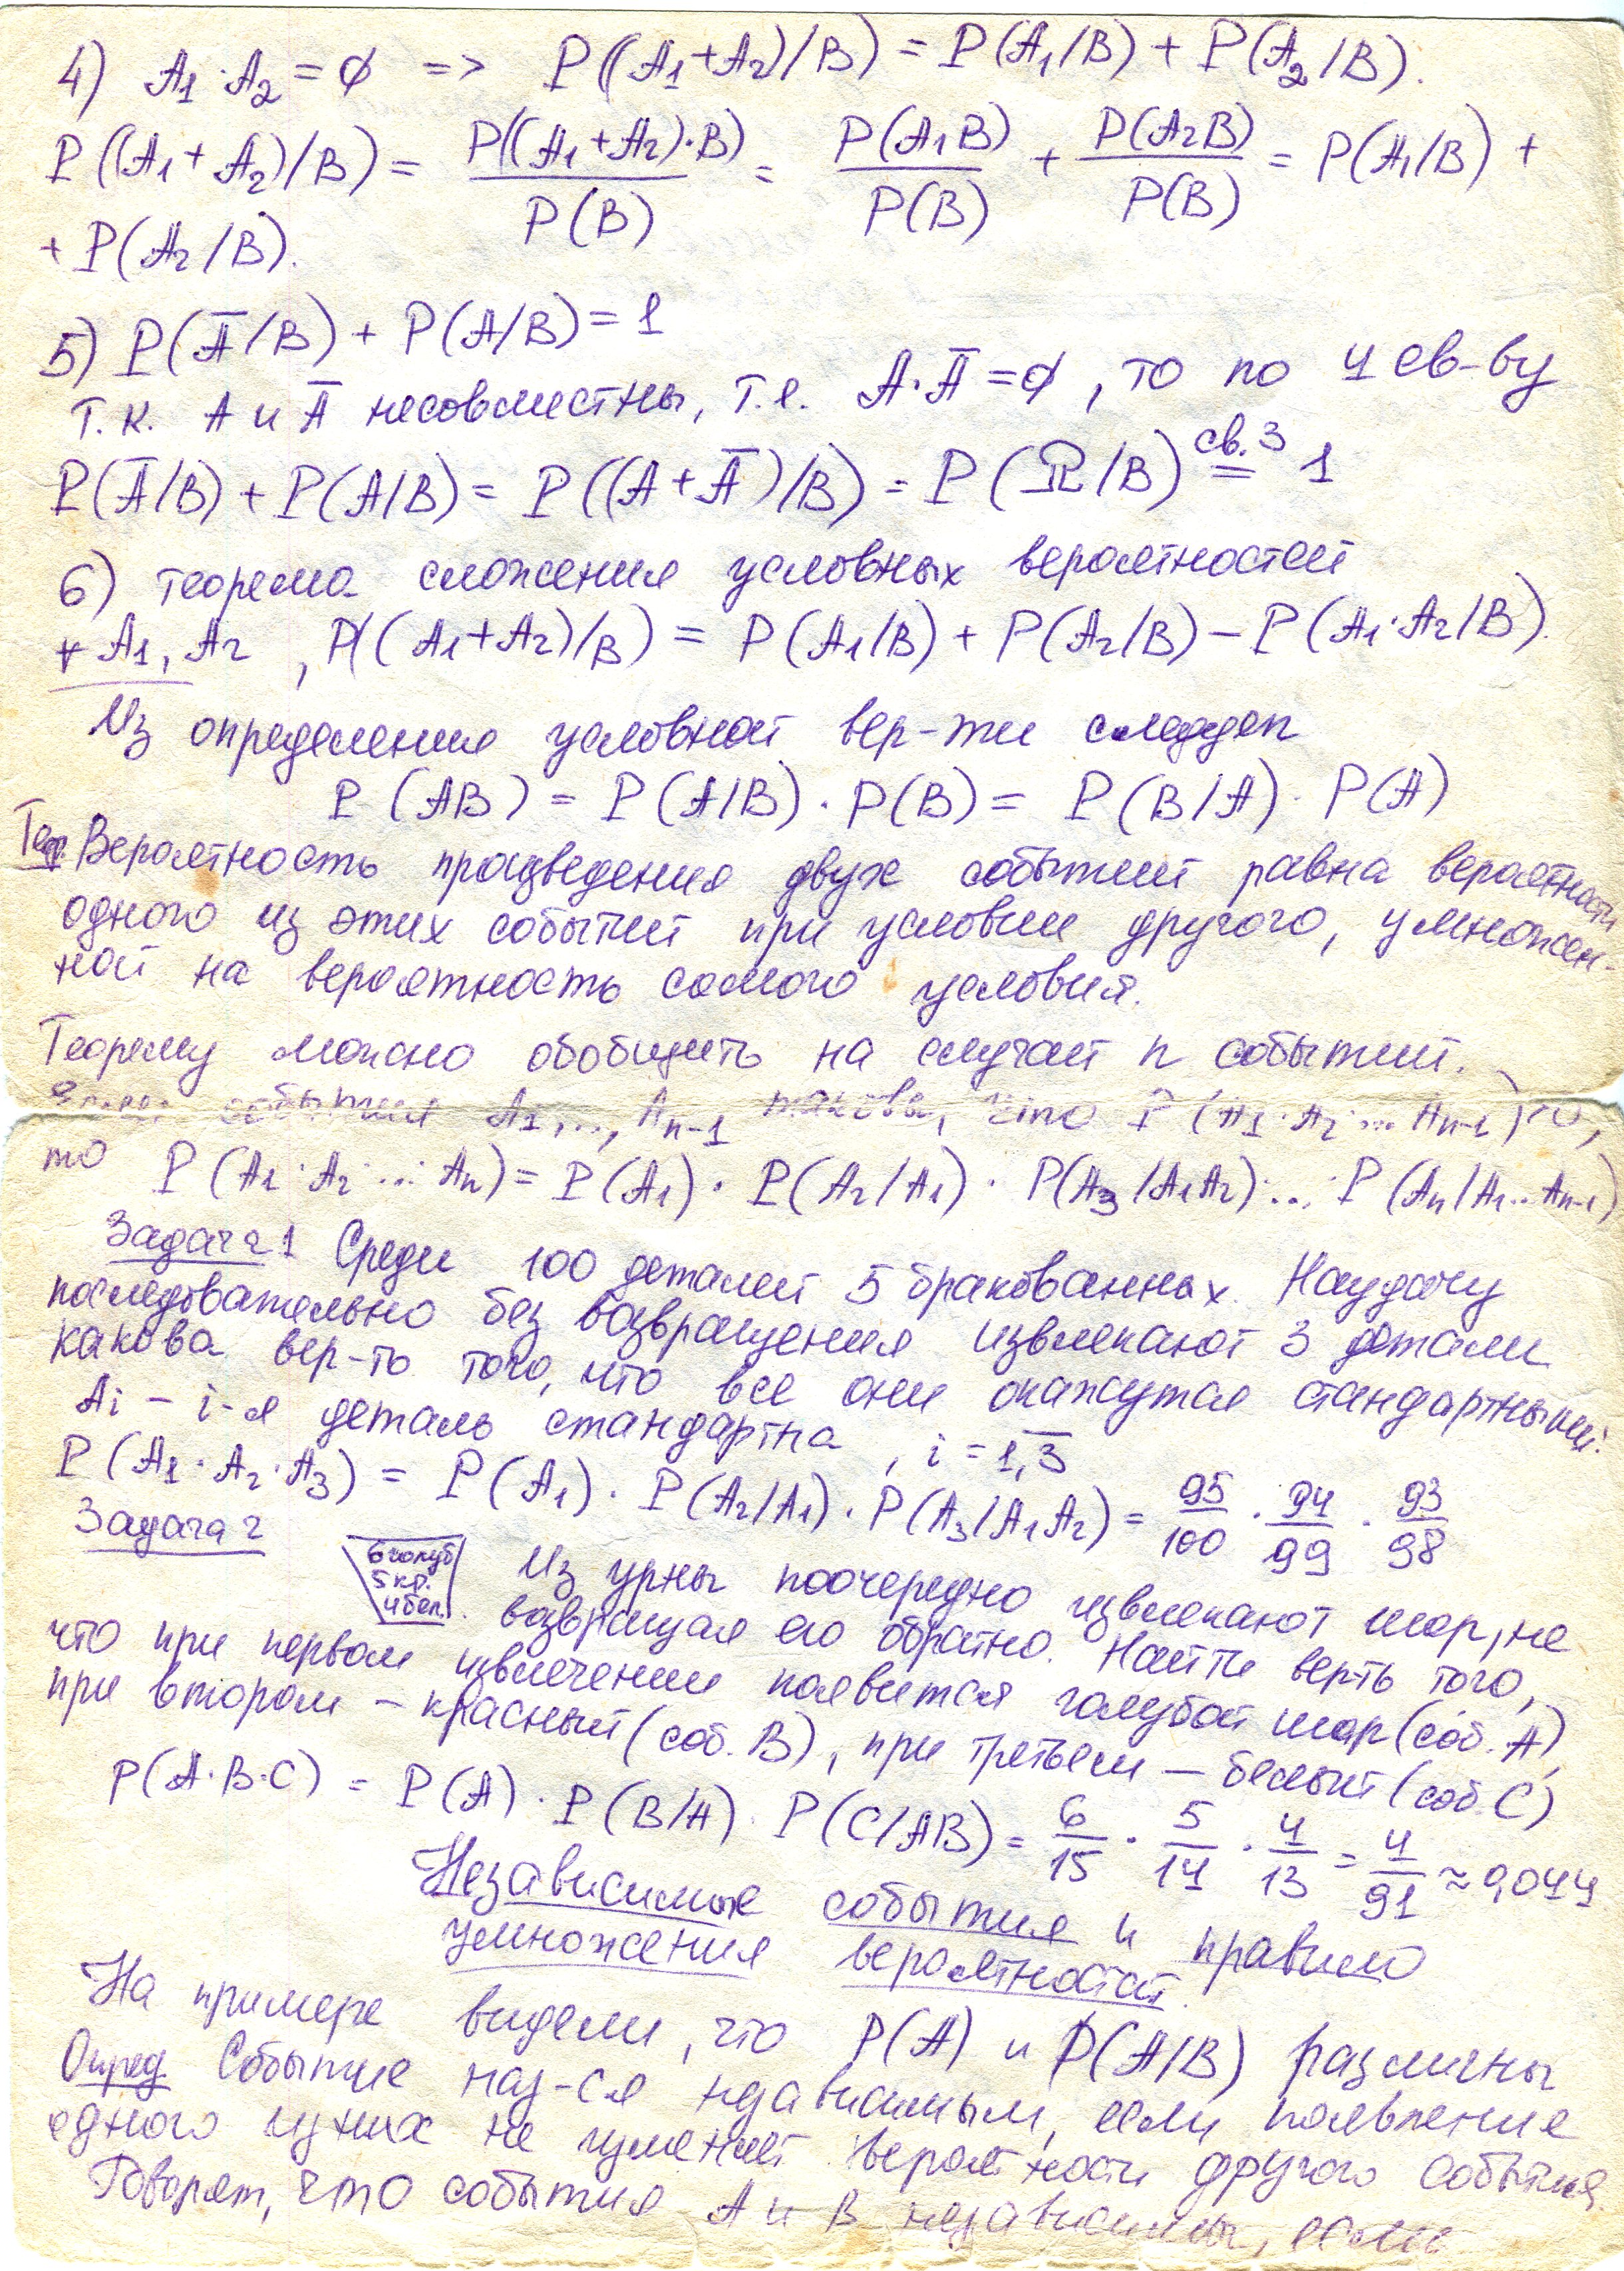 4) A₁·A₂ = ∅ => P((A₁+A₂)/B) = P(A₁/B) + P(A₂/B).
P((A₁+A₂)/B) = P((A₁+A₂)·B)/P(B) = P(A₁B)/P(B) + P(A₂B)/P(B) = P(A₁/B) +
+ P(A₂/B).
5) P(Ā/B) + P(A/B) = 1
Т.к. A и Ā несовместны, т.е. A·Ā = ∅, то по 4 св-ву
P(Ā/B) + P(A/B) = P((A+Ā)/B) = P(Ω/B) = 1 св.3
6) Теорема сложения условных вероятностей
∀ A₁, A₂, P((A₁+A₂)/B) = P(A₁/B) + P(A₂/B) − P(A₁·A₂/B).
Из определения условной вер-ти следует
P(AB) = P(A/B)·P(B) = P(B/A)·P(A)
Теор. Вероятность произведения двух событий равна вероятности
одного из этих событий при условии другого, умножен-
ной на вероятность самого условия.
Теорему можно обобщить на случай n событий.
события A₁,..., Aₙ₋₁ таковы, что P(A₁·A₂·...Aₙ₋₁)>0,
то P(A₁·A₂·...·Aₙ) = P(A₁)·P(A₂/A₁)·P(A₃/A₁A₂)·...·P(Aₙ/A₁...Aₙ₋₁)
Задача 1 Среди 100 деталей 5 бракованных. Наудачу
последовательно без возвращения извлекают 3 детали
какова вер-ть того, что все они окажутся стандартными.
Ai – i-я деталь стандартна, i = 1,3
P(A₁·A₂·A₃) = P(A₁)·P(A₂/A₁)·P(A₃/A₁A₂) = 95/100 · 94/99 · 93/98
Задача 2
6 голуб
5 кр.
4 бел.
Из урны поочередно извлекают шар, не
возвращая его обратно. Найти верть того,
что при первом извлечении появится голубой шар (соб. A),
при втором – красный (соб. B), при третьем – белый (соб. C)
P(A·B·C) = P(A)·P(B/A)·P(C/AB) = 6/15 · 5/14 · 4/13 = 4/91 ≈ 0,044
Независимые события и правило
умножения вероятностей.
На примере видели, что P(A) и P(A/B) различны
Опред Событие наз-ся независимым, если появление
одного из них не изменяет вероятности другого события.
Говорят, что события A и B независимы, если